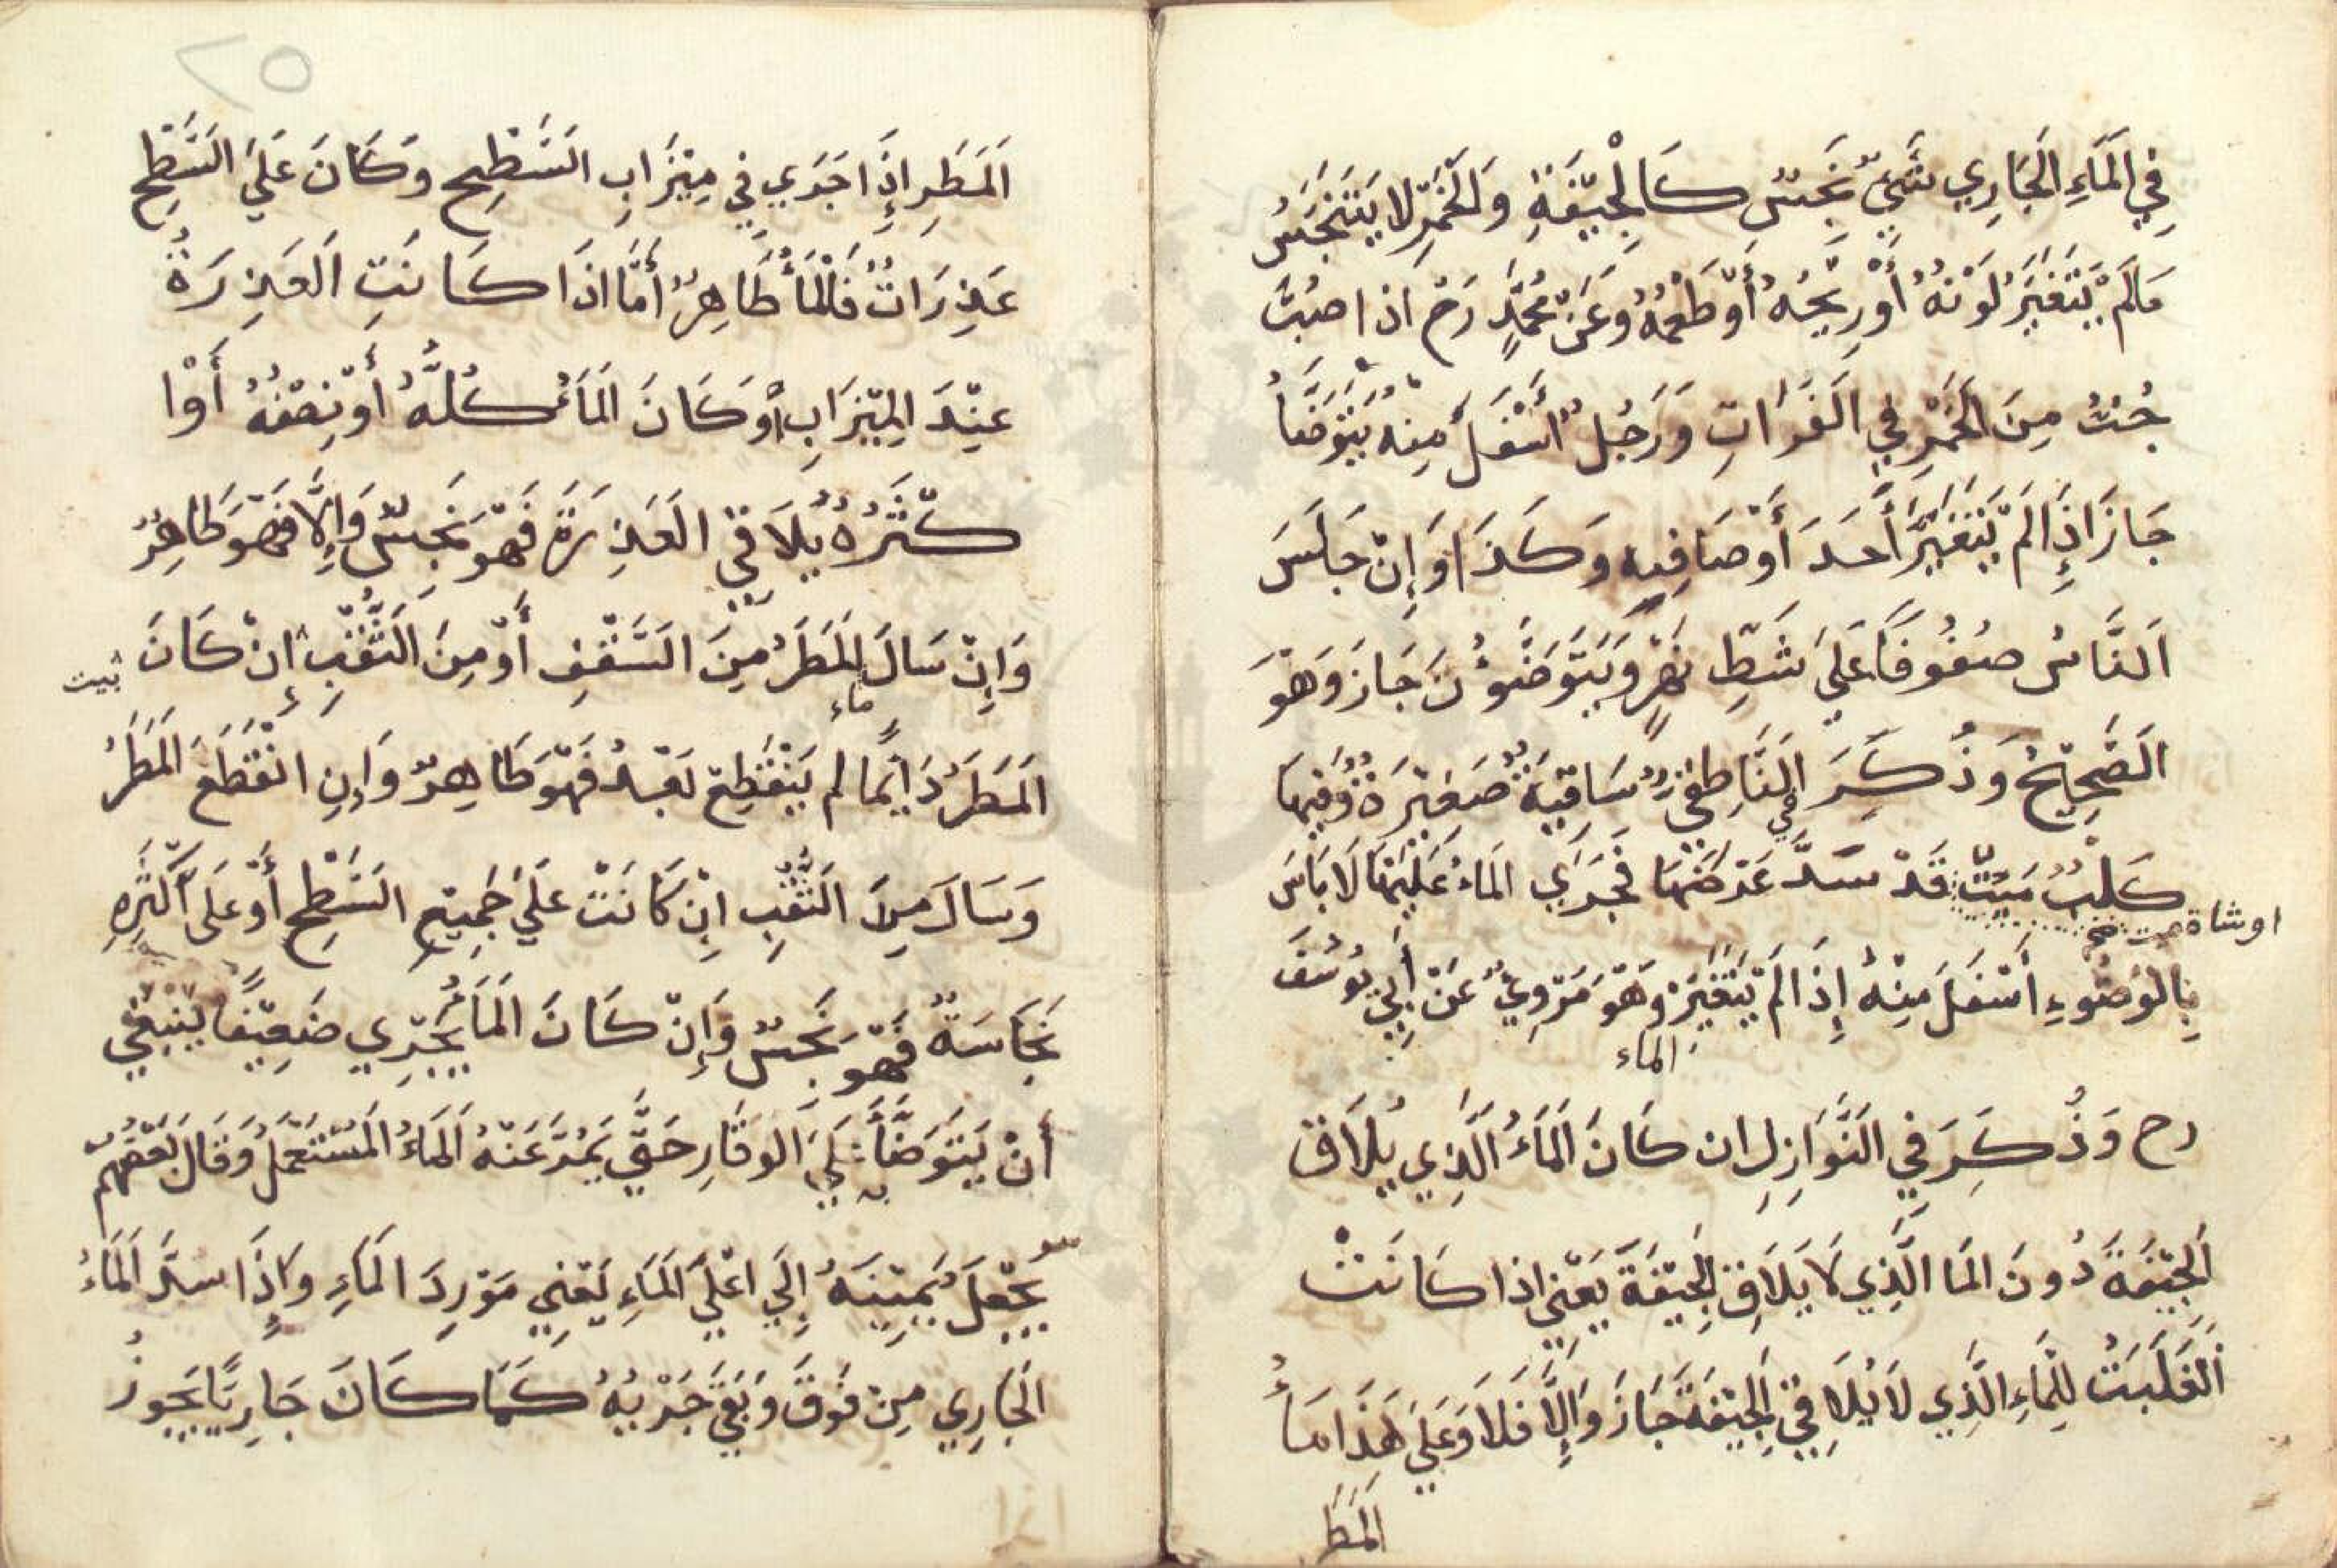 فِي الْمَاءِ الْجَارِي شَيْءٌ نَجَسٌ كَالْجِيْفَةِ وَالْخَمْرِ لَا يَتَنَجَّسُ
مَالَمْ يَتَغَيَّرْ لَوْنُهُ أَوْ رِيْحُهُ أَوْ طَعْمُهُ وَعَنْ مُحَمَّدٍ رَحْ اذا صُبَّ
حُبٌّ مِنَ الْخَمْرِ فِي الْفَرَاتِ وَرَجُلٌ اَسْفَلَ مِنْهُ يَتَوَضَّأُ
جَازَ اِذَا لَمْ يَتَغَيَّرْ أَحَدَ أَوْصَافِهِ وَكَذَا وَإِنْ جَلَسَ
اَلنَّاسُ صُفُوفًا عَلَى شَطِّ نَهْرٍ وَيَتَوَضَّؤُنَ جَازَ وَهُوَ
الصَّحِيْحُ وَذُكِرَ فِي النَّاطِفِيْ سَاقِيَةٌ صَغِيْرَةٌ وَفِيْهَا
كَلْبٌ مَيِّتٌ قَدْ سَدَّ عَرْضَهَا فَجَرَي الْمَاءُ عَلَيْهَا لَا بَاسَ
اوشاة ميت خ
بِالْوُضُوءِ اَسْفَلَ مِنْهُ إِذَا لَمْ يَتَغَيَّرْ وَهُوَ مَرْوِيٌّ عَنْ أَبِي يُوسُفَ
الماء
رح وَذُكِرَ فِي النَّوَازِلِ ان كَانَ الْمَاءُ الَّذِي يُلَاقِ
الْجِيْفَةَ دُونَ الْمَا الَّذِي لَا يُلَاقِ الْجِيْفَةَ يَعْنِي اِذا كَانَتْ
اَلْغَلَبَتُ لِلْمَاءِ الَّذِي لَا يُلَاقِي الْجِيْفَةَ جَازَ وَاِلَّا فَلَا وَعَلَى هَذَا مَاءُ
الْمَطَر
٢٥
اَلْمَطَرِ اِذَا جَرَي فِي مِيْزَابِ السَّطِيْحِ وَكَانَ عَلَى السَّطْحِ
عَذِرَاتٌ فَالْمَأُ طَاهِرٌ أَمَّا اذَا كَانَتِ الْعَذِرَةُ
عِنْدَ الْمِيْزَابِ أَوْ كَانَ الْمَاءُ كُلُّهُ أَوْ نِصْفُهُ أَوْ ا
كْثَرُهُ يُلَاقِي الْعَذِرَةَ فَهُوَ نَجِسٌ وَاِلَّا فَهُوَ طَاهِرٌ
وَإِنْ سَالَ الْمَطَرُ مِنَ السَّقْفِ أَوْ مِنَ الثَّقْبِ إِنْ كَانَ
ماء
الْمَطَرُ دَائِمًا لم يَنْقَطِعْ بَعْدُ فَهُوَ طَاهِرٌ وَاِنِ انْقَطَعَ الْمَطَرُ
وَسَالَ مِنَ الثَّقْبِ اِنْ كَانَتْ عَلَى جَمِيْعِ السَّطْحِ أَوْ عَلَى اَكْثَرِهِ
نَجَاسَةٌ فَهُوَ نَجِسٌ وَإِنْ كَانَ الْمَاءُ يَجْرِي ضَعِيْفًا يَنْبَغِي
أَنْ يَتَوَضَّأَ عَلَى الْوَقَارِ حَتَّي يَمُرَّ عَنْهُ اَلْمَاءُ الْمُسْتَعْمَلُ وَقَالَ بَعْضُهُمْ
يَجْعَلُ يَمِيْنَهُ إِلَي اَعْلَى الْمَاءِ يَعْنِي مَوْرِدَ الْمَاءِ وَاِذَا سَدَّ الْمَاءُ
الْجَارِي مِنْ فَوْقَ وَبَقِيَ جَرْيُهُ كَمَا كَانَ جَارِيًا يَجُوزُ